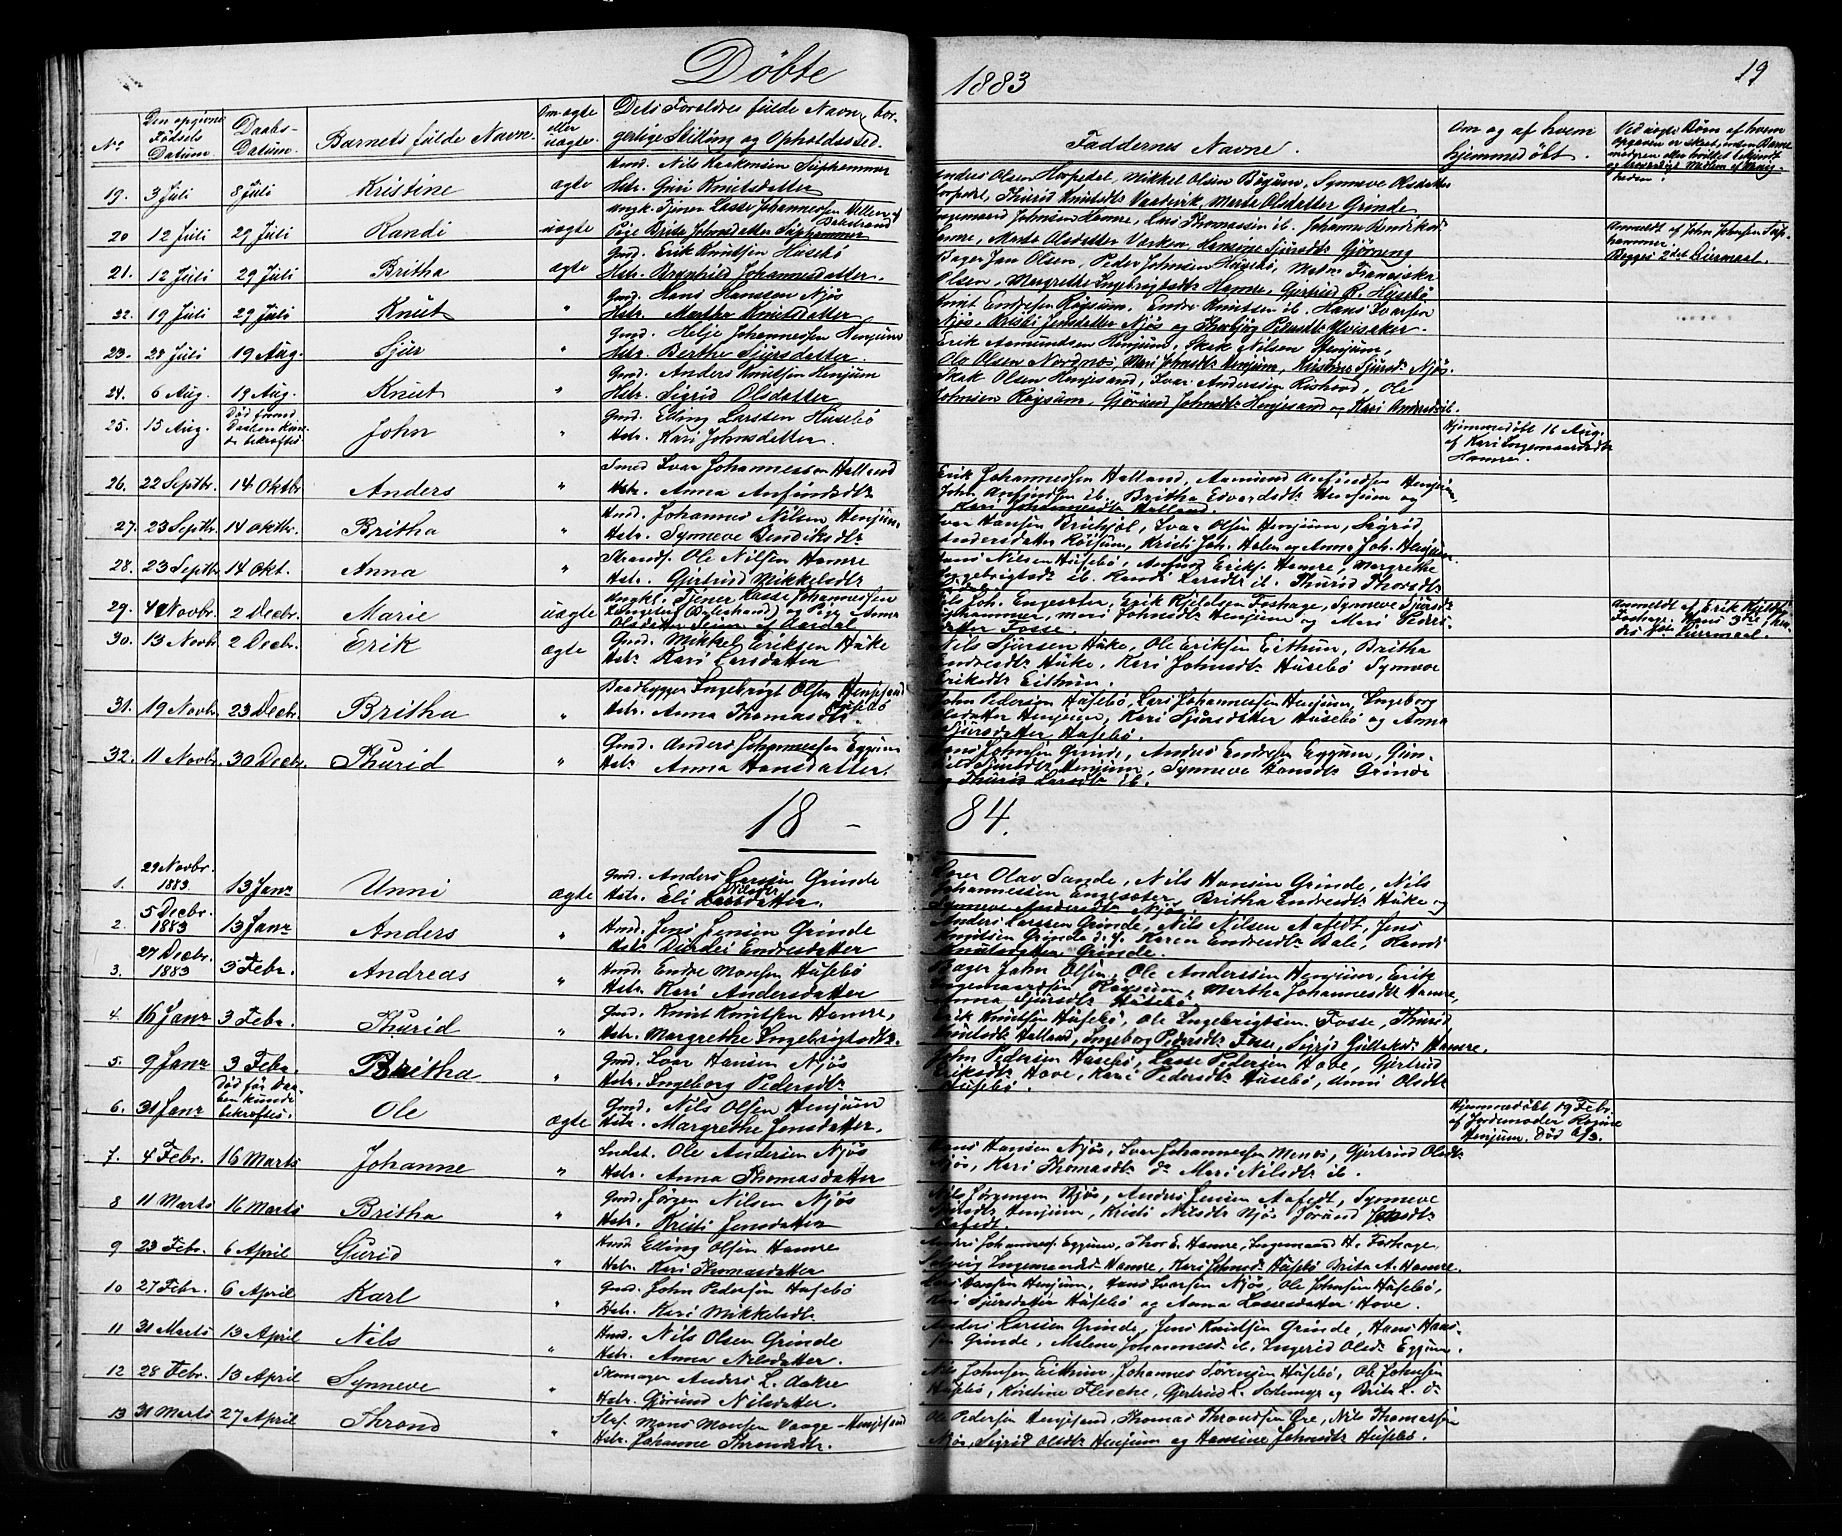 Döbte 1883 19
No. Den opgivne Fødsels Datum. Daabs-Datum. Barnets fulde Navn. Om ægte eller uægte. Dets Forældres fulde Navn, borgerlige Stilling og Opholdssted. Faddernes Navne. Om og af hvem hjemmedøbt.
19. 3 Juli 8 Juli Kristine ægte Nils
Hstr. Guri Knutsdatter
Andres Olsen Mikkel Olsen Röysum, Synneve Olsdatter
Thurid Knutsdtr Marte Olsdatter Grinde
20 12 Juli 29 Juli Randi uægte Ungk. Tjener Lasse Johannessen
Pige Brita Johnsdatter
Johnsen Hamre, Lars Thomassen ib. Johanne
Hamre, Marta Olsdatter
Anmeldt af John Johnsen
Begges 2det Leiermaal.
21. 12 Juli 29 Juli Britha ægte Gmd. Erik Knutsen Hüsebö
Hstr. Brynhild Johannesdatter.
Bager Jan Olsen, Peder Johnsen Hüsebö,
Olsen, Margrethe Ingebrigtsdtr Hamre, Gjertrud R. Hüsebö
22. 19 Juli 29 Juli Knut " Gmd. Hans Hanssen Njös
Hstr. Martha Knutsdatter
Knut Endresen Röysum, Endre Knutsen ib. Hans Ivarsen
Njös, Kristi Jensdatter Njös og
23. 28 Juli 19 Aug. Sjur " Gmd. Helje Johannessen Henjum
Hstr. Berthe Sjursdatter.
Erik Aamundsen Henjum, Skak Nilsen Henjum,
Ole Olsen Nordnæs, Mari Johnsdtr Henjum, Kristine Sjursdtr Njös.
24. 6 Aug. 19 Aug. Knut " Gmd. Anders Knutsen Henjum
Hstr. Sigrid Olsdatter
Skak Olsen Henjesand, Ivar Anderssen Ole
Johnsen Röysum, Gjörund Johnsdtr Henjesand og Kari Andersdtr ib.
25. 15 Aug. Död forend Daaben kunde bekræftes John " Gmd. Elling Larssen Hüsebö
Hstr. Kari Johnsdatter.
Hjemmedöbt 16 Aug.
af Kari Ingemaarsdtr
Hamre.
26. 22 Septbr. 14 Oktbr Anders " Ivar Johannessen Halland
Hstr. Anna Anfindsdtr
Erik Johannessen Halland, Aamund Anfindsen Henjum,
John Anfindsen ib. Britha Edvardsdtr Henjum og
Kari Johannesdtr Halland.
27. 23 Septbr. 14 Oktbr. Britha " Hmd. Johannes Nilsen Henjum
Hstr. Synneve Bendiksdtr
Ivar Hansen Ivar Olsen Henjum, Sigrid
Andersdatter Röisum, Kristi Joh. og Anna Joh. Henjum
28. 23 Septbr 14 Okt. Anna " Strands. Ole Nilsen Hamre
Hstr. Gjertrud Mikkelsdtr
Hans Nilsen Hüsebö, Eriks. Hamre, Margrethe
Ingebrigtsdtr ib. Randi Larsdtr ib. Thurid
29. 4 Novbr. 2 Decbr. Marie uægte Ungkl. Tjener Lasse Johannessen
(Balestrand) og Pige Anna
Olsdatter af Aardal
Nils Joh. Engesæter, Erik Kjeldsen Foshage, Synneve Sjursdtr
Mari Johnsdtr Henjum og Mari
Fosse.
Anmeldt af Erik Kjelds.
Foshage. Hans 3die
Leiermaal.
30. 13 Novbr. 2 Decbr. Erik ægte Gmd. Mikkel Eriksen Hüke
Hstr. Kari Larsdatter
Nils Sjursen Hüke, Ole Eriksen Eithun, Britha
Endresdtr Hüke, Kari Johnsdtr Hüsebö Synneve
Eriksdtr Eithun.
31. 19 Novbr. 23 Decbr. Britha " Baadbygger Ingebrigt Olsen Henjesand
Hstr. Anna Thomasdtr Hüsebö
John Pedersen Hüsebö, Lars Johannessen Henjum, Ingeborg
Olsdatter Henjum, Kari Sjursdatter Hüsebö og Anna
Sjursdatter Hüsebö.
32. 11 Novbr. 30 Decbr. Thurid " Gmd. Anders Johannessen Eggum
Hstr. Anna Hansdatter.
Hans Johnsen Grinde, Andres Endresen Eggum,
Henjum, Synneve Hansdtr Grinde
og Thurid Larsdtr ib.
18 - 84.
1. 29 Novbr. 1883. 13 Janr Unni ægte Gmd. Anders Larssen Grinde
Hstr. Eli Nilsdatter.
Olav Sande, Nils Hansen Grinde, Nils
Johannessen Engesæter, Britha Endresdtr Hüke og
Synneve Andersdtr Njös.
2. 5 Decbr. 1883 13 Janr Anders " Hmd. Jens Jensen Grinde
Hstr. Endresdatter
Anders Larssen Grinde, Nils Nilsen Aafedt, Jens
Knudsen Grinde d.y. Karen Endresdtr Bale, Randi
Grinde.
3. 27 Decbr. 1883 3 Febr. Andreas " Hmd. Endre Monsen Hüsebö
Hstr. Kari Andersdatter
Bager John Olsen, Ole Anderssen Henjum, Erik
Ingemaarsen Röysum, Martha Johannesdtr Hamre,
Anna Sjursdtr Hüsebö.
4. 16 Janr 3 Febr. Thurid " Gmd. Knut Knutsen Hamre,
Hstr. Margrethe Ingebrigtsdtr.
Erik Knutsen Hüsebö, Ole Ingebrigtsen Fosse, Thurid
Knutsdtr Halland, Ingeborg Pedersdtr Fosse, Sigrid Hamre.
5. 9 Janr 3 Febr. Britha " Gmd. Ivar Hansen Njös
Hstr. Ingeborg Pedersdtr
John Pedersen Hüsebö, Lasse Pedersen Hove, Gjertrud
Eriksdtr Hove, Kari Pedersdtr Hüsebö, Unni Olsdtr
Hüsebö.
6. 31 Janr Död för Daaben kunde bekræftes. Ole ægte Gmd. Nils Olsen Henjum
Hstr. Margrethe Jensdatter.
Hjemmedöbt 19 Febr.
af Jordemoder Ragine
Henjum. Död
7. 4 Febr. 16 Marts Johanne " Ole Andersen Njös
Hstr. Anna Thomasdatter
Hans Hansen Njös, Ivar Johannessen Menes, Gjertrud Olsdtr
Njös, Kari Thomasdtr do Mari Nilsdtr ib.
8 11 Marts 16 Marts Britha " Gmd. Jörgen Nilsen Njös
Hstr. Kristi Jensdatter
Nils Jörgensen Njös, Anders Jensen Aafedt, Synneve
Nilsdtr Henjum, Kristi Nilsdtr Njös Jörund Jensdtr
Aafedt.
9 23 Febr. 6 April Gurid " Hmd. Elling Olsen Hamre
Hstr. Kari Thomasdatter
Anders Johanness. Eggum, Thor E. Hamre, Ingemaard H. Foshage,
Solveig Ingemaarsdtr Hamre, Kari Johnsdtr Hüsebö Brita A. Hamre.
10 27 Febr. 6 April Karl " Gmd. John Pedersen Hüsebö
Hstr. Kari Mikkelsdtr
Lars Hansen Henjum, Hans Ivarsen Njös, Ole Johnsen Hüsebö,
Sjursdatter Hüsebö og Anna Lassesdatter Hove.
11 31 Marts 13 April Nils " Hmd. Nils Olsen Grinde
Hstr. Anna Nilsdatter.
Anders Larssen Grinde, Jens Knudsen Grinde, Hans Hans-
sen Grinde, Malene Johannesdtr ib. Ingerid Olsdtr Eggum.
12 28 Febr. 13 April Synneve " Skomager Anders L. Aakre
Hstr. Gjörund Nilsdatter.
Nils Johnsen Eithun, Johannes Hüsebö, Ole Johnsen
Hüsebö, Kristine Flesche, Gjertrud L. og Brita L. do
13 31 Marts 27 April Thrond " Mons Monsen Vange-Henjesand
Hstr. Johanne Throndsdtr.
Ole Pedersen Henjesand, Thomas Throndsen Öre, Nils Thomassen
Njös, Sigrid Olsdtr Henjum og Hansine Johnsdtr Hüsebö.